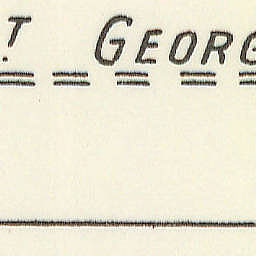 T. GEORG